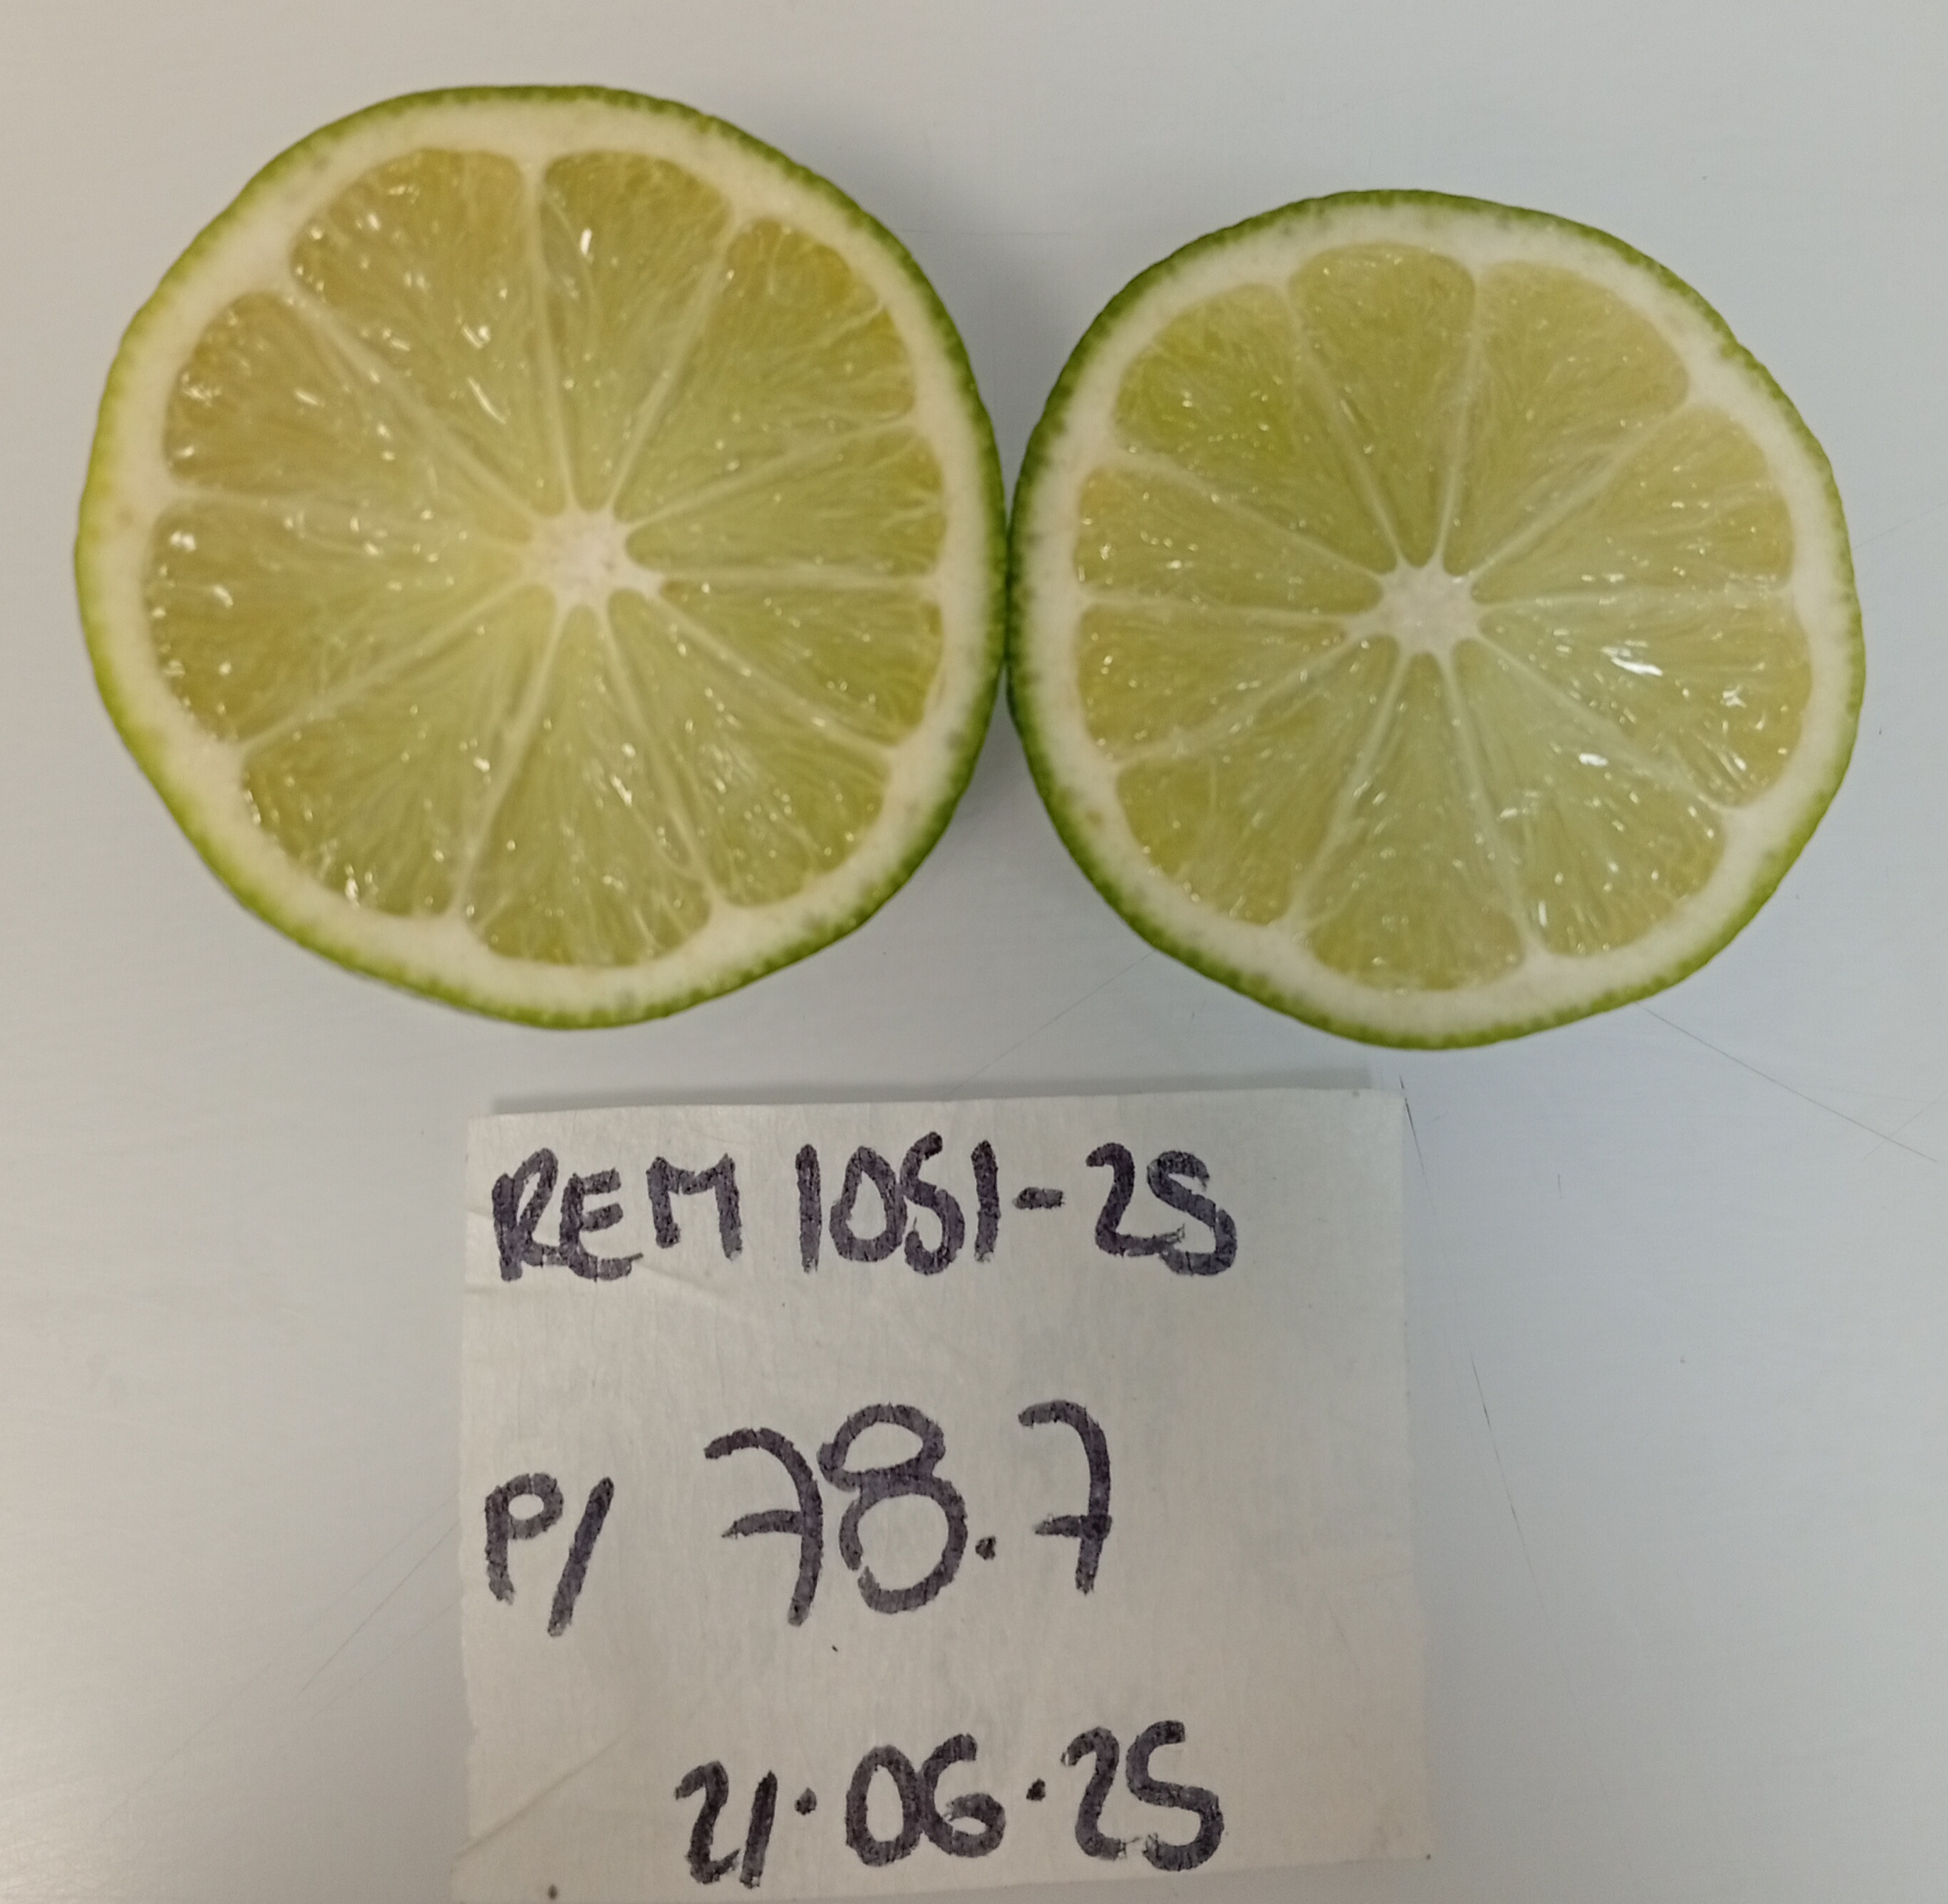 REM 1051-25
P/ 78.7
21.06.25